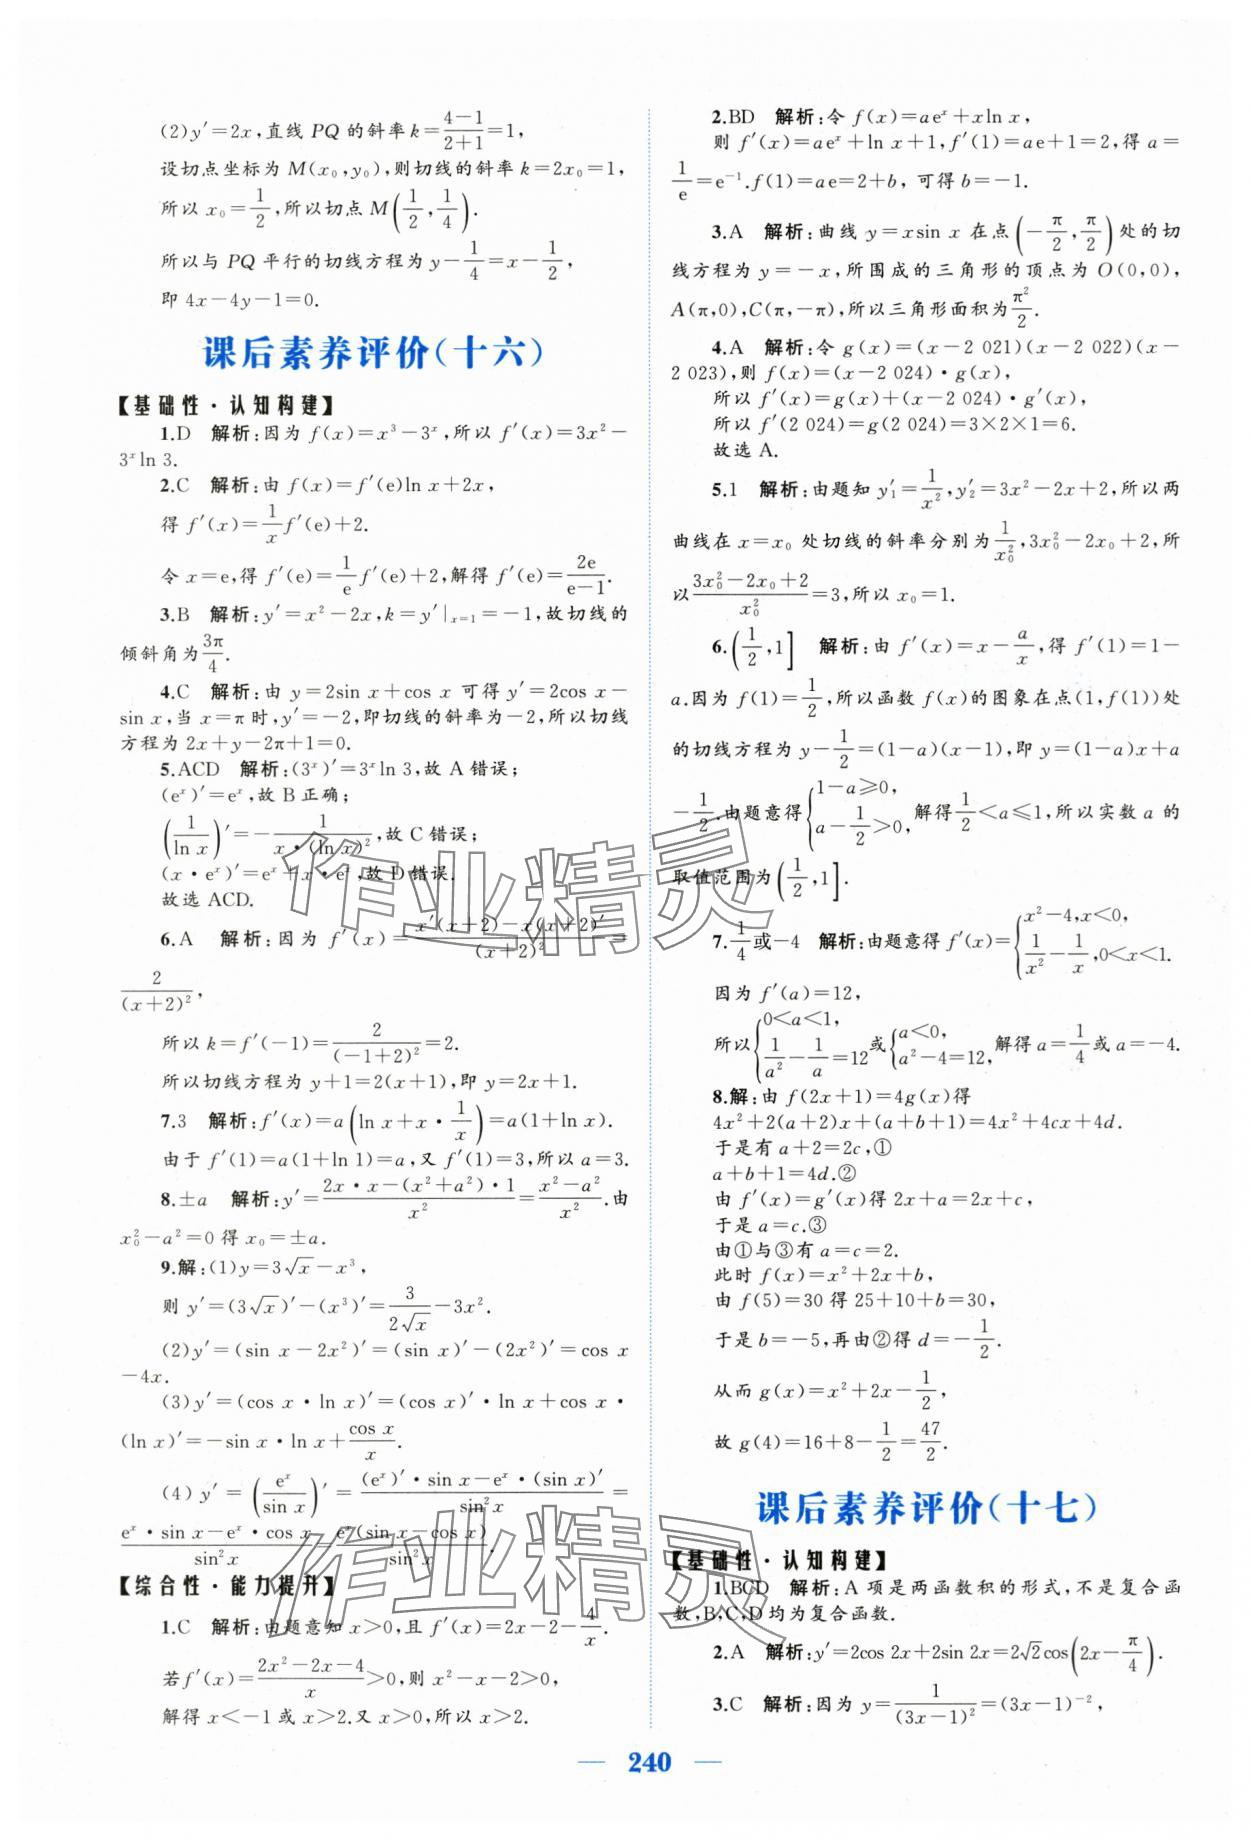 (2)y′=2x,直线 PQ 的斜率 k=\frac{4-1}{2+1}=1,
设切点坐标为 M(x₀,y₀),则切线的斜率 k=2x₀=1,
所以 x₀=\frac{1}{2},所以切点 M(\frac{1}{2},\frac{1}{4}).
所以与 PQ 平行的切线方程为 y-\frac{1}{4}=x-\frac{1}{2},
即 4x-4y-1=0.
课后素养评价(十六)
【基础性·认知构建】
1.D 解析:因为 f(x)=x³-3ˣ,所以 f′(x)=3x²-
3ˣln 3.
2.C 解析:由 f(x)=f′(e)ln x+2x,
得 f′(x)=\frac{1}{x}f′(e)+2.
令 x=e,得 f′(e)=\frac{1}{e}f′(e)+2,解得 f′(e)=\frac{2e}{e-1}.
3.B 解析:y′=x²-2x,k=y′|ₓ₌₁=-1,故切线的
倾斜角为\frac{3π}{4}.
4.C 解析:由 y=2sin x+cos x 可得 y′=2cos x-
sin x,当 x=π 时,y′=-2,即切线的斜率为-2,所以切线
方程为 2x+y-2π+1=0.
5.ACD 解析:(3ˣ)′=3ˣln 3,故 A 错误;
(eˣ)′=eˣ,故 B 正确;
(\frac{1}{ln x})′=-\frac{1}{x·(ln x)²},故 C 错误;
(x·eˣ)′=eˣ+x·eˣ,故 D 错误.
故选 ACD.
6.A 解析:因为 f′(x)=\frac{x′(x+2)-x(x+2)′}{(x+2)²}=
\frac{2}{(x+2)²},
所以 k=f′(-1)=\frac{2}{(-1+2)²}=2.
所以切线方程为 y+1=2(x+1),即 y=2x+1.
7.3 解析:f′(x)=a(ln x+x·\frac{1}{x})=a(1+ln x).
由于 f′(1)=a(1+ln 1)=a,又 f′(1)=3,所以 a=3.
8.±a 解析:y′=\frac{2x·x-(x²+a²)·1}{x²}=\frac{x²-a²}{x²}.由
x₀²-a²=0 得 x₀=±a.
9.解:(1)y=3√x-x³,
则 y′=(3√x)′-(x³)′=\frac{3}{2√x}-3x².
(2)y′=(sin x-2x²)′=(sin x)′-(2x²)′=cos x
-4x.
(3)y′=(cos x·ln x)′=(cos x)′·ln x+cos x·
(ln x)′=-sin x·ln x+\frac{cos x}{x}.
(4) y′=(\frac{eˣ}{sin x})′=\frac{(eˣ)′·sin x-eˣ·(sin x)′}{sin²x}=
\frac{eˣ·sin x-eˣ·cos x}{sin²x}=\frac{eˣ(sin x-cos x)}{sin²x}.
【综合性·能力提升】
1.C 解析:由题意知 x>0,且 f′(x)=2x-2-\frac{4}{x}.
若 f′(x)=\frac{2x²-2x-4}{x}>0,则 x²-x-2>0,
解得 x<-1 或 x>2.又 x>0,所以 x>2.
2.BD 解析:令 f(x)=aeˣ+xln x,
则 f′(x)=aeˣ+ln x+1,f′(1)=ae+1=2,得 a=
\frac{1}{e}=e⁻¹.f(1)=ae=2+b,可得 b=-1.
3.A 解析:曲线 y=xsin x 在点(-\frac{π}{2},\frac{π}{2})处的切
线方程为 y=-x,所围成的三角形的顶点为 O(0,0),
A(π,0),C(π,-π),所以三角形面积为\frac{π²}{2}.
4.A 解析:令 g(x)=(x-2 021)(x-2 022)(x-
2 023),则 f(x)=(x-2 024)·g(x),
所以 f′(x)=g(x)+(x-2 024)·g′(x),
所以 f′(2 024)=g(2 024)=3×2×1=6.
故选 A.
5.1 解析:由题知 y₁′=\frac{1}{x²},y₂′=3x²-2x+2,所以两
曲线在 x=x₀ 处切线的斜率分别为\frac{1}{x₀²},3x₀²-2x₀+2,所
以\frac{3x₀²-2x₀+2}{x₀²}=3,所以 x₀=1.
6.(\frac{1}{2},1] 解析:由 f′(x)=x-\frac{a}{x},得 f′(1)=1-
a.因为 f(1)=\frac{1}{2},所以函数 f(x)的图象在点(1,f(1))处
的切线方程为 y-\frac{1}{2}=(1-a)(x-1),即 y=(1-a)x+a
-\frac{1}{2}.由题意得{1-a≥0, a-\frac{1}{2}>0, 解得\frac{1}{2}<a≤1,所以实数 a 的
取值范围为(\frac{1}{2},1].
7.\frac{1}{4}或-4 解析:由题意得 f′(x)={x²-4,x<0, \frac{1}{x²}-\frac{1}{x},0<x<1.
因为 f′(a)=12,
所以{0<a<1, \frac{1}{a²}-\frac{1}{a}=12 或{a<0, a²-4=12, 解得 a=\frac{1}{4}或 a=-4.
8.解:由 f(2x+1)=4g(x)得
4x²+2(a+2)x+(a+b+1)=4x²+4cx+4d.
于是有 a+2=2c,①
a+b+1=4d.②
由 f′(x)=g′(x)得 2x+a=2x+c,
于是 a=c.③
由①与③有 a=c=2.
此时 f(x)=x²+2x+b,
由 f(5)=30 得 25+10+b=30,
于是 b=-5,再由②得 d=-\frac{1}{2}.
从而 g(x)=x²+2x-\frac{1}{2},
故 g(4)=16+8-\frac{1}{2}=\frac{47}{2}.
课后素养评价(十七)
【基础性·认知构建】
1.BCD 解析:A 项是两函数积的形式,不是复合函
数,B,C,D 均为复合函数.
2.A 解析:y′=2cos 2x+2sin 2x=2√2cos(2x-\frac{π}{4}).
3.C 解析:因为 y=\frac{1}{(3x-1)²}=(3x-1)⁻²,
— 240 —
作业精灵
作业精灵